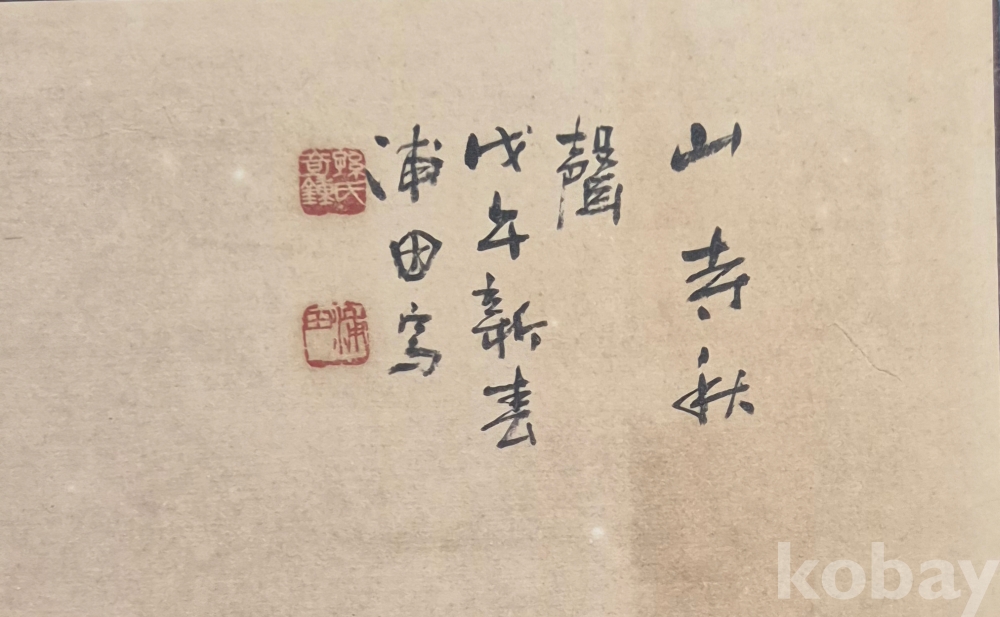 山寺秋
聲
戊午新春
浦田寫
孫氏
奇鍾
浦
田
kobay